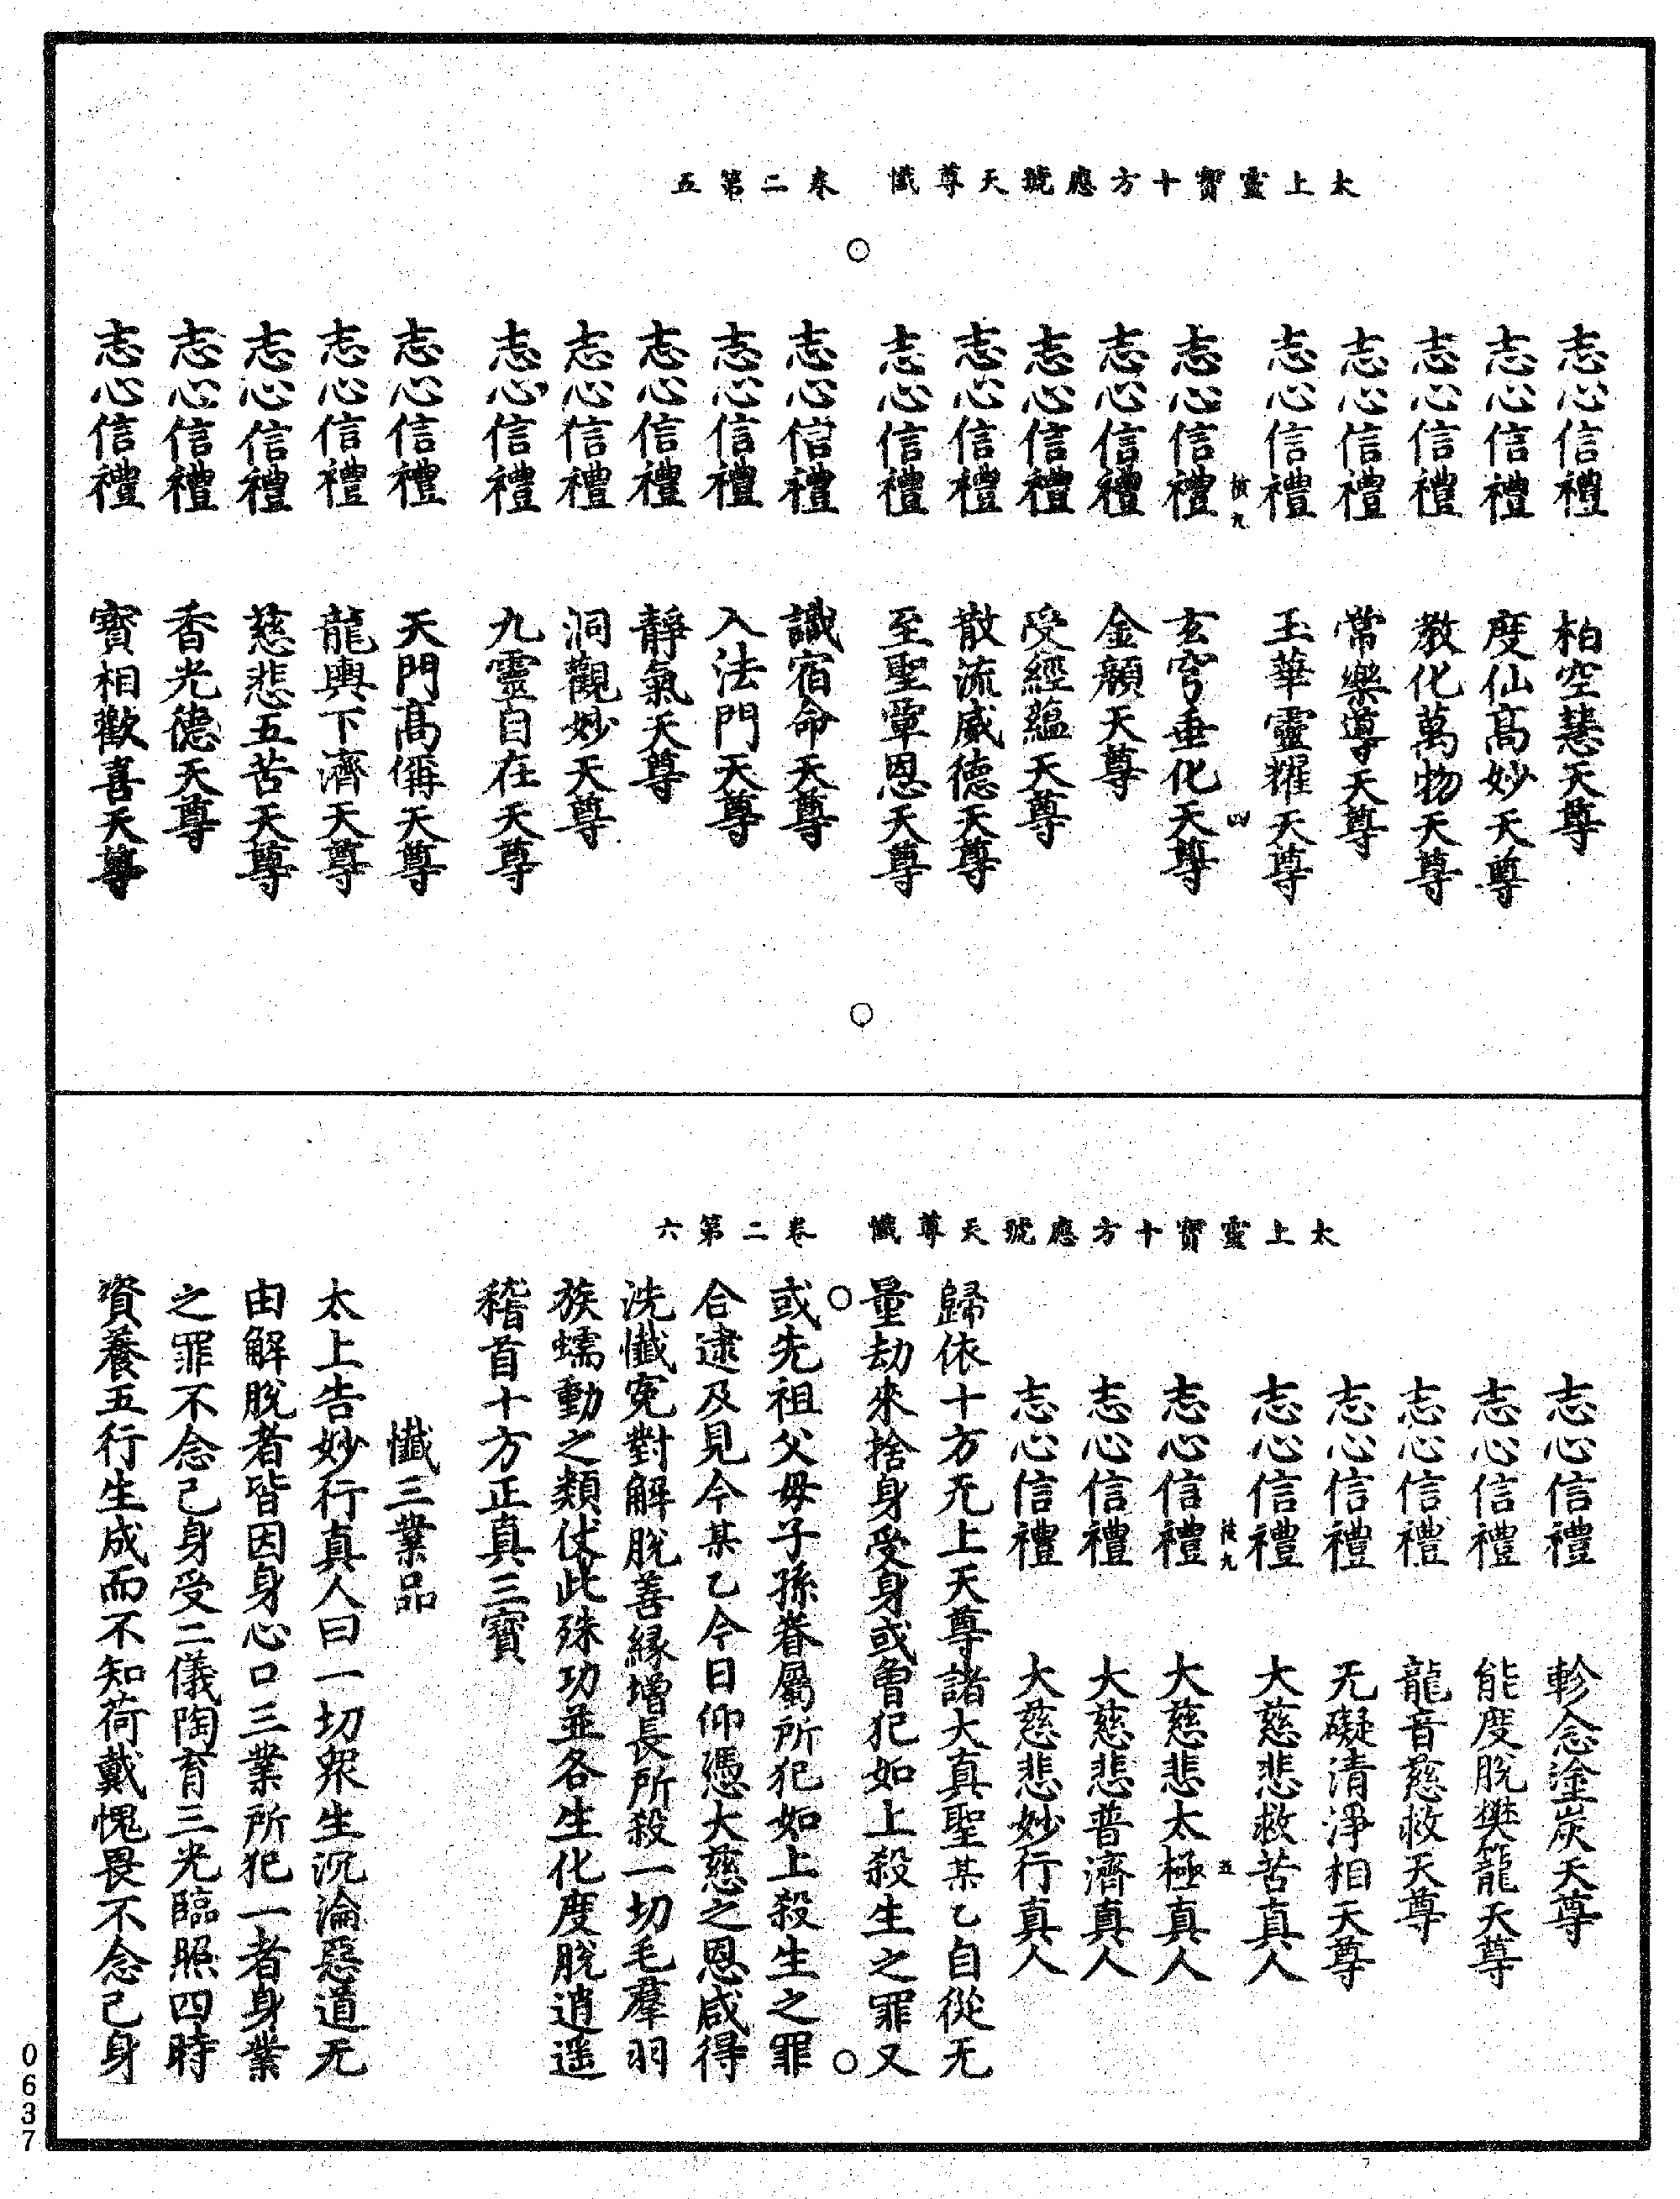 太上靈寶十方應號天尊懺　卷二第五
志心信禮　柏空慧天尊
志心信禮　度仙高妙天尊
志心信禮　教化萬物天尊
志心信禮　常樂導天尊
志心信禮　玉華靈耀天尊
九　四
志心信禮　玄穹垂化天尊
志心信禮　金顏天尊
志心信禮　受經蘊天尊
志心信禮　散流威德天尊
志心信禮　至聖覃恩天尊
志心信禮　識宿命天尊
志心信禮　入法門天尊
志心信禮　靜氣天尊
志心信禮　洞觀妙天尊
志心信禮　九靈自在天尊
志心信禮　天門高偁天尊
志心信禮　龍輿下濟天尊
志心信禮　慈悲五苦天尊
志心信禮　香光德天尊
志心信禮　寶相歡喜天尊
太上靈寶十方應號天尊懺　卷二第六
志心信禮　軫念塗炭天尊
志心信禮　能度脫樊籠天尊
志心信禮　龍音慈救天尊
志心信禮　无礙清淨相天尊
志心信禮　大慈悲救苦真人
九　五
志心信禮　大慈悲太極真人
志心信禮　大慈悲普濟真人
志心信禮　大慈悲妙行真人
歸依十方无上天尊諸大真聖某乙自從无
量劫來捨身受身或曾犯如上殺生之罪又
或先祖父母子孫眷屬所犯如上殺生之罪
合逮及見今某乙今日仰憑大慈之恩咸得
洗懺冤對解脫善縁增長所殺一切毛羣羽
族蠕動之類仗此殊功並各生化度脫逍遥
稽首十方正真三寶
懺三業品
太上告妙行真人曰一切衆生沉淪惡道无
由解脫者皆因身心口三業所犯一者身業
之罪不念己身受二儀陶育三光臨照四時
資養五行生成而不知荷戴愧畏不念己身
0637